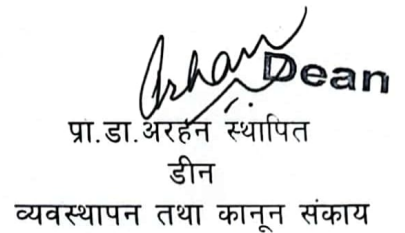 Arhan Dean
प्रा.डा.अरहन स्थापित
डीन
व्यवस्थापन तथा कानून संकाय